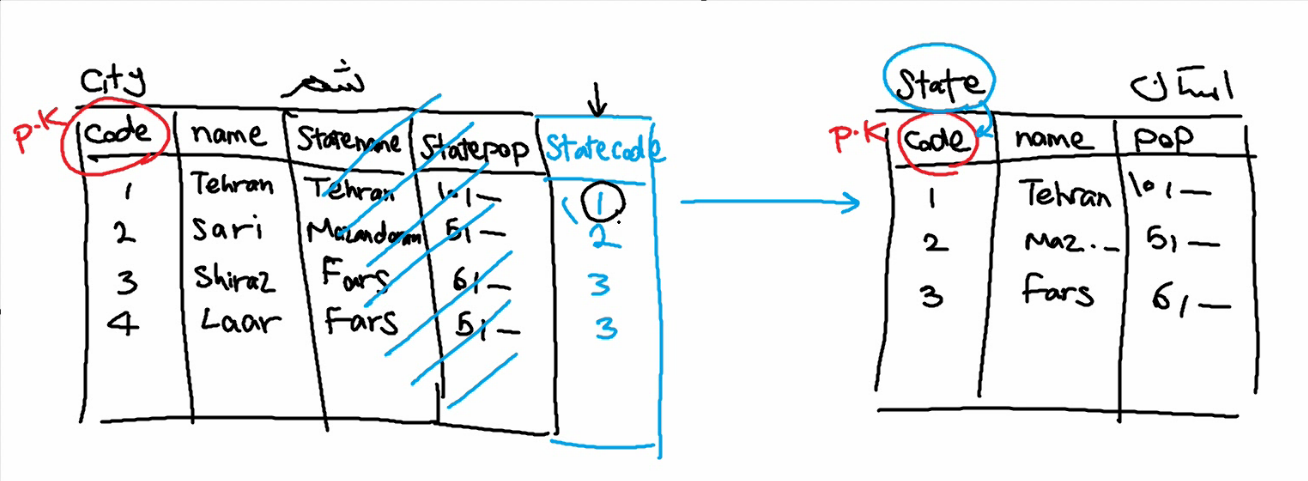 City شهر
P.K Code name Statename Statepop Statecode
1 Tehran Tehran 10,— 1
2 Sari Mazandaran 5,— 2
3 Shiraz Fars 6,— 3
4 Laar Fars 5,— 3
State استان
P.K Code name pop
1 Tehran 10,—
2 Maz.— 5,—
3 Fars 6,—